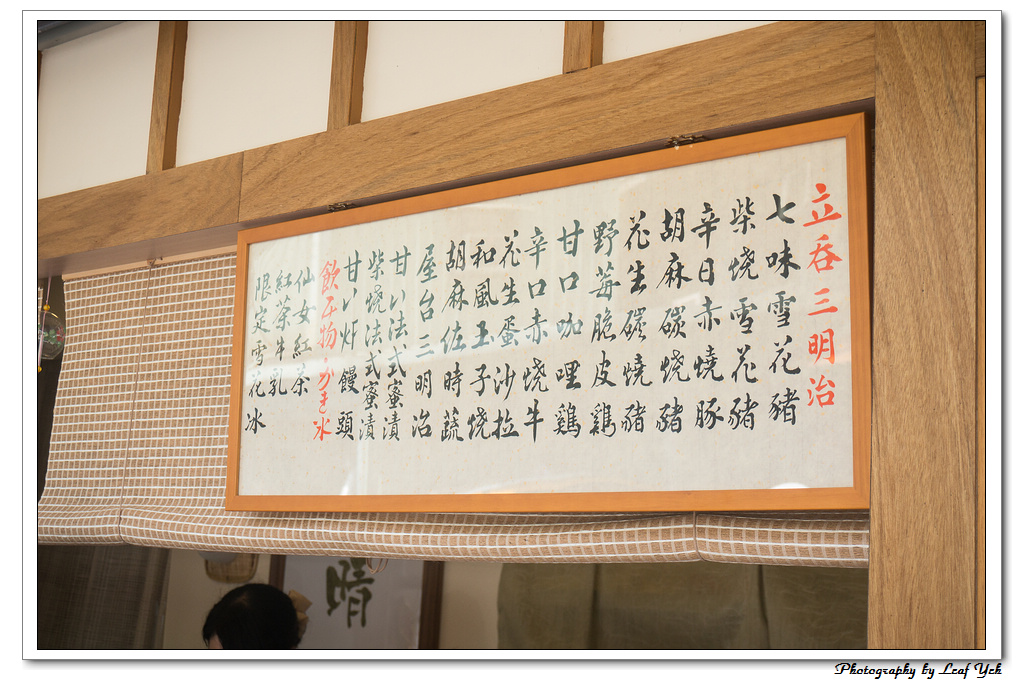 立吞三明治
七味雪花豬
柴燒雪花豬
辛日赤燒豚
胡麻碳燒豬
花生碳燒豬
野莓脆皮鷄
甘口咖哩鷄
辛口赤燒牛
花生蛋沙拉
和風玉子燒
胡麻佐時蔬
屋台三明治
甘い法式蜜漬
柴燒法式蜜漬
甘い炸饅頭
飲み物・かき氷
仙女紅茶
紅茶牛乳
限定雪花冰
晴
Photography by Leaf Yeh